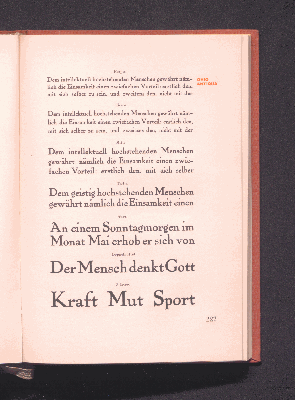 Dem intellektuell hochstehenden Menschen gewährt näm-
lich die Einsamkeit einen zwiefachen Vorteil: erstlich den,
mit sich selber zu sein, und zweitens den, nicht mit der
Dem intellektuell hochstehenden Menschen gewährt näm-
lich die Einsamkeit einen zwiefachen Vorteil: erstlich den,
mit sich selber zu sein, und zweitens den, nicht mit der
Dem intellektuell hochstehenden Menschen
gewährt nämlich die Einsamkeit einen zwie-
fachen Vorteil: erstlich den, mit sich selbst
Dem geistig hochstehenden Menschen
gewährt nämlich die Einsamkeit einen
An einem Sonntagmorgen im
Monat Mai erhob er sich von
Der Mensch denkt Gott
Kraft Mut Sport